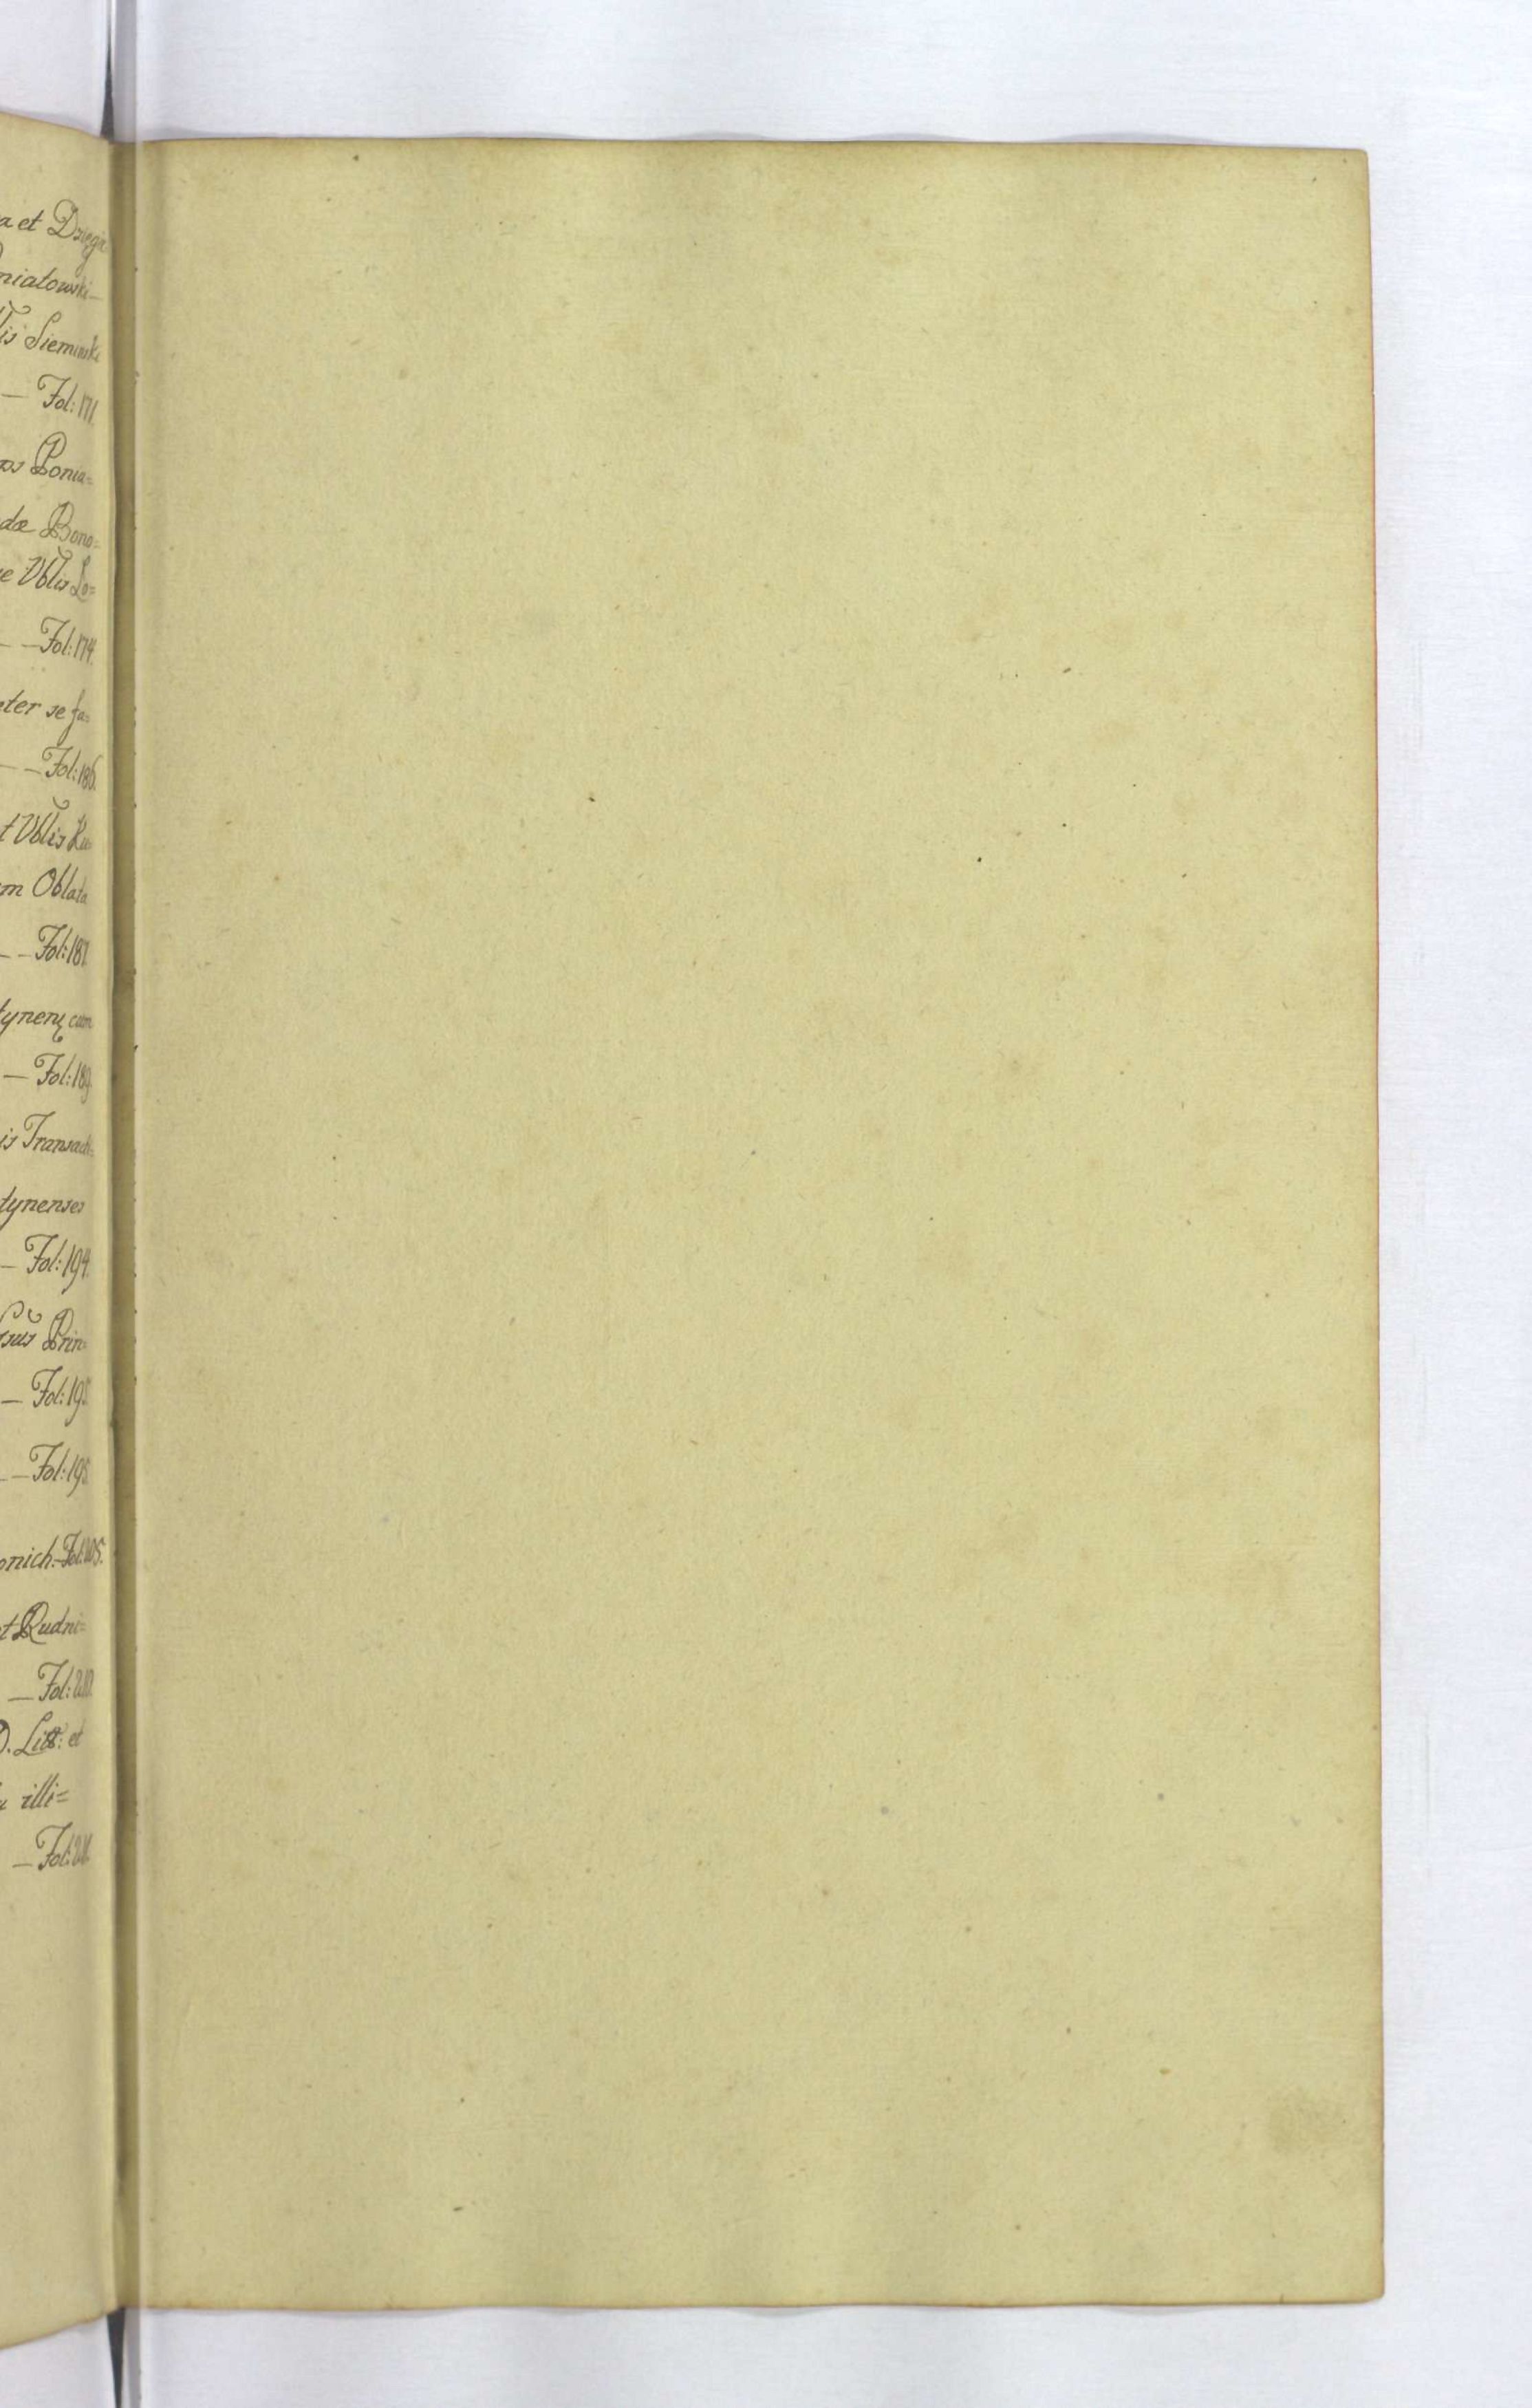 a et Dzięgie
niatowski
Tis Siemiński
— Fol: 171.
ps Ponia=
dæ Bono=
e Vblis Lo=
— — Fol: 174.
ter se fa=
— — Fol: 186.
t Vblis Ku=
m Oblata
— — Fol: 187.
tynen cum
— Fol: 189.
is Transacti=
tynenses
— Fol: 194.
Prin=
— Fol: 195.
— — Fol: 195.
onich. — Fol: 205.
t Rudni=
— Fol: 210.
D. Litt: et
illi=
— Fol: